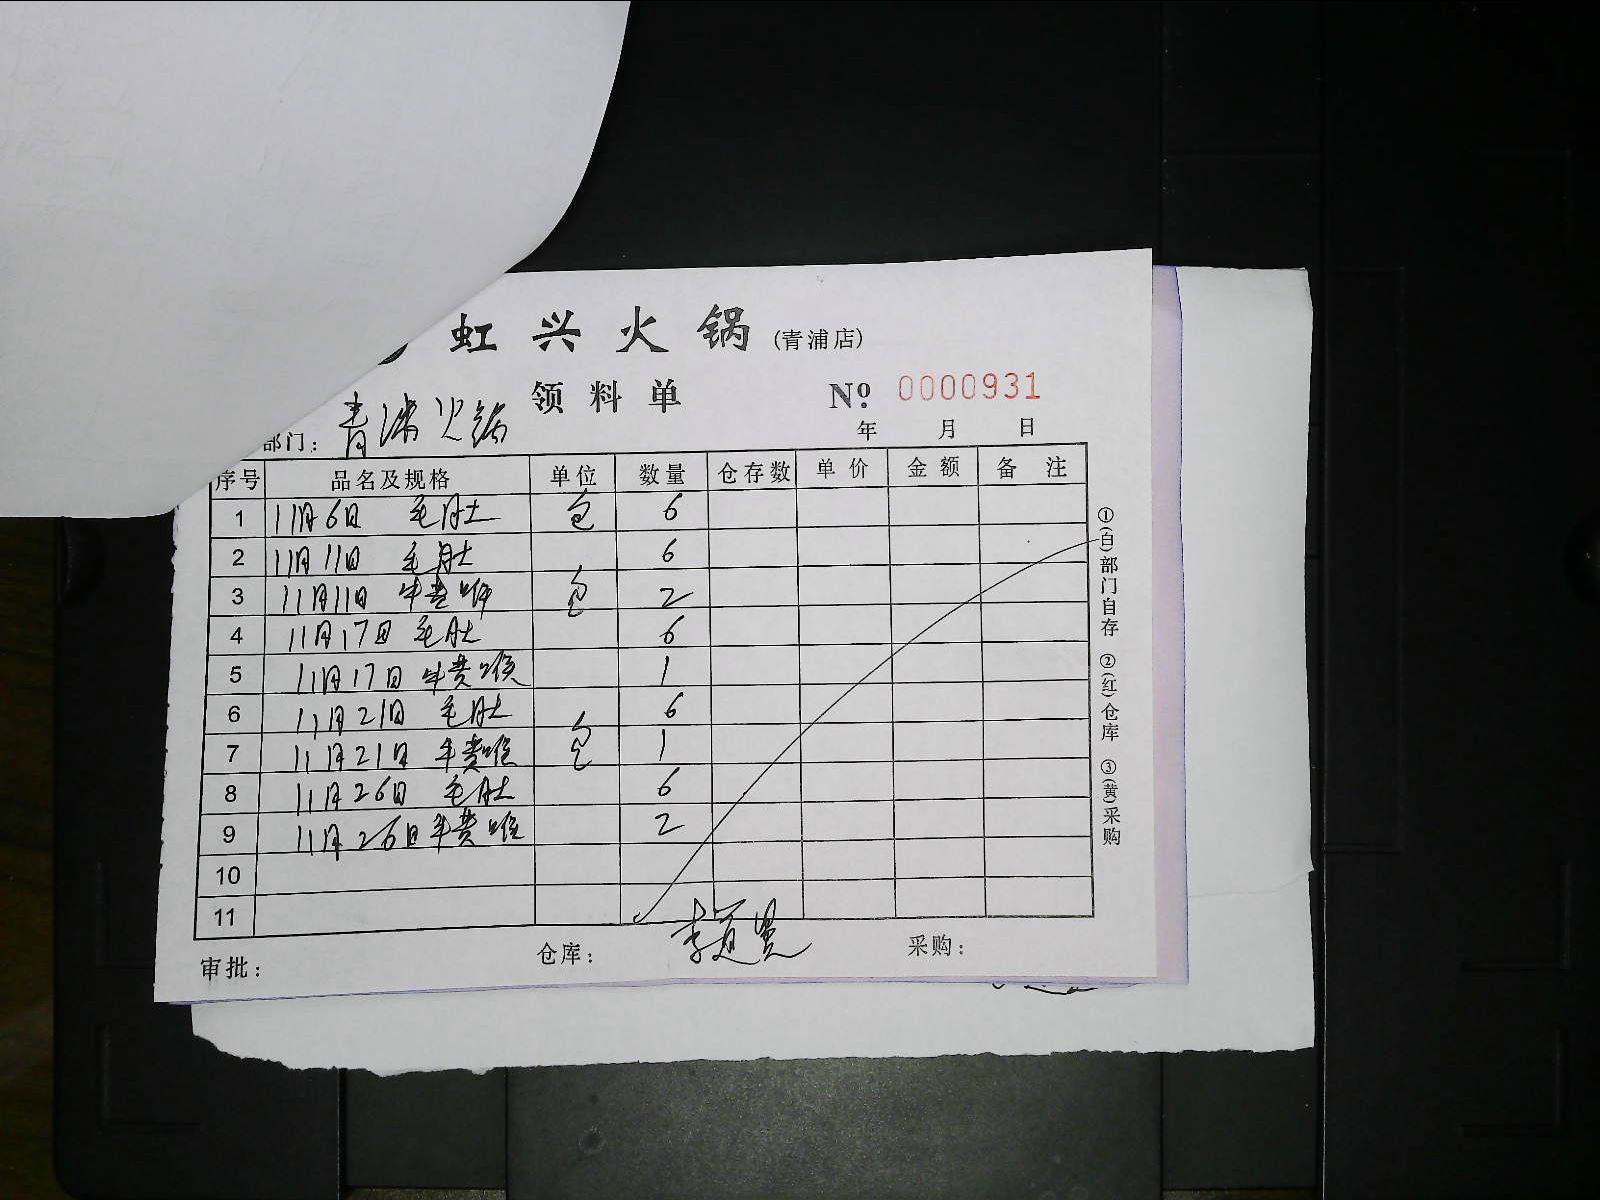 虹兴火锅(青浦店)
领料单 Nº 0000931
部门：青浦火锅 年 月 日
序号 品名及规格 单位 数量 仓存数 单价 金额 备注
1 11月6日 毛肚 包 6
2 11月11日 毛肚 6
3 11月11日 牛黄喉 包 2
4 11月17日 毛肚 6
5 11月17日 牛黄喉 1
6 11月21日 毛肚 6
7 11月21日 牛黄喉 包 1
8 11月26日 毛肚 6
9 11月26日 牛黄喉 2
10
11
审批： 仓库： 采购：
①(白)部门自存 ②(红)仓库 ③(黄)采购